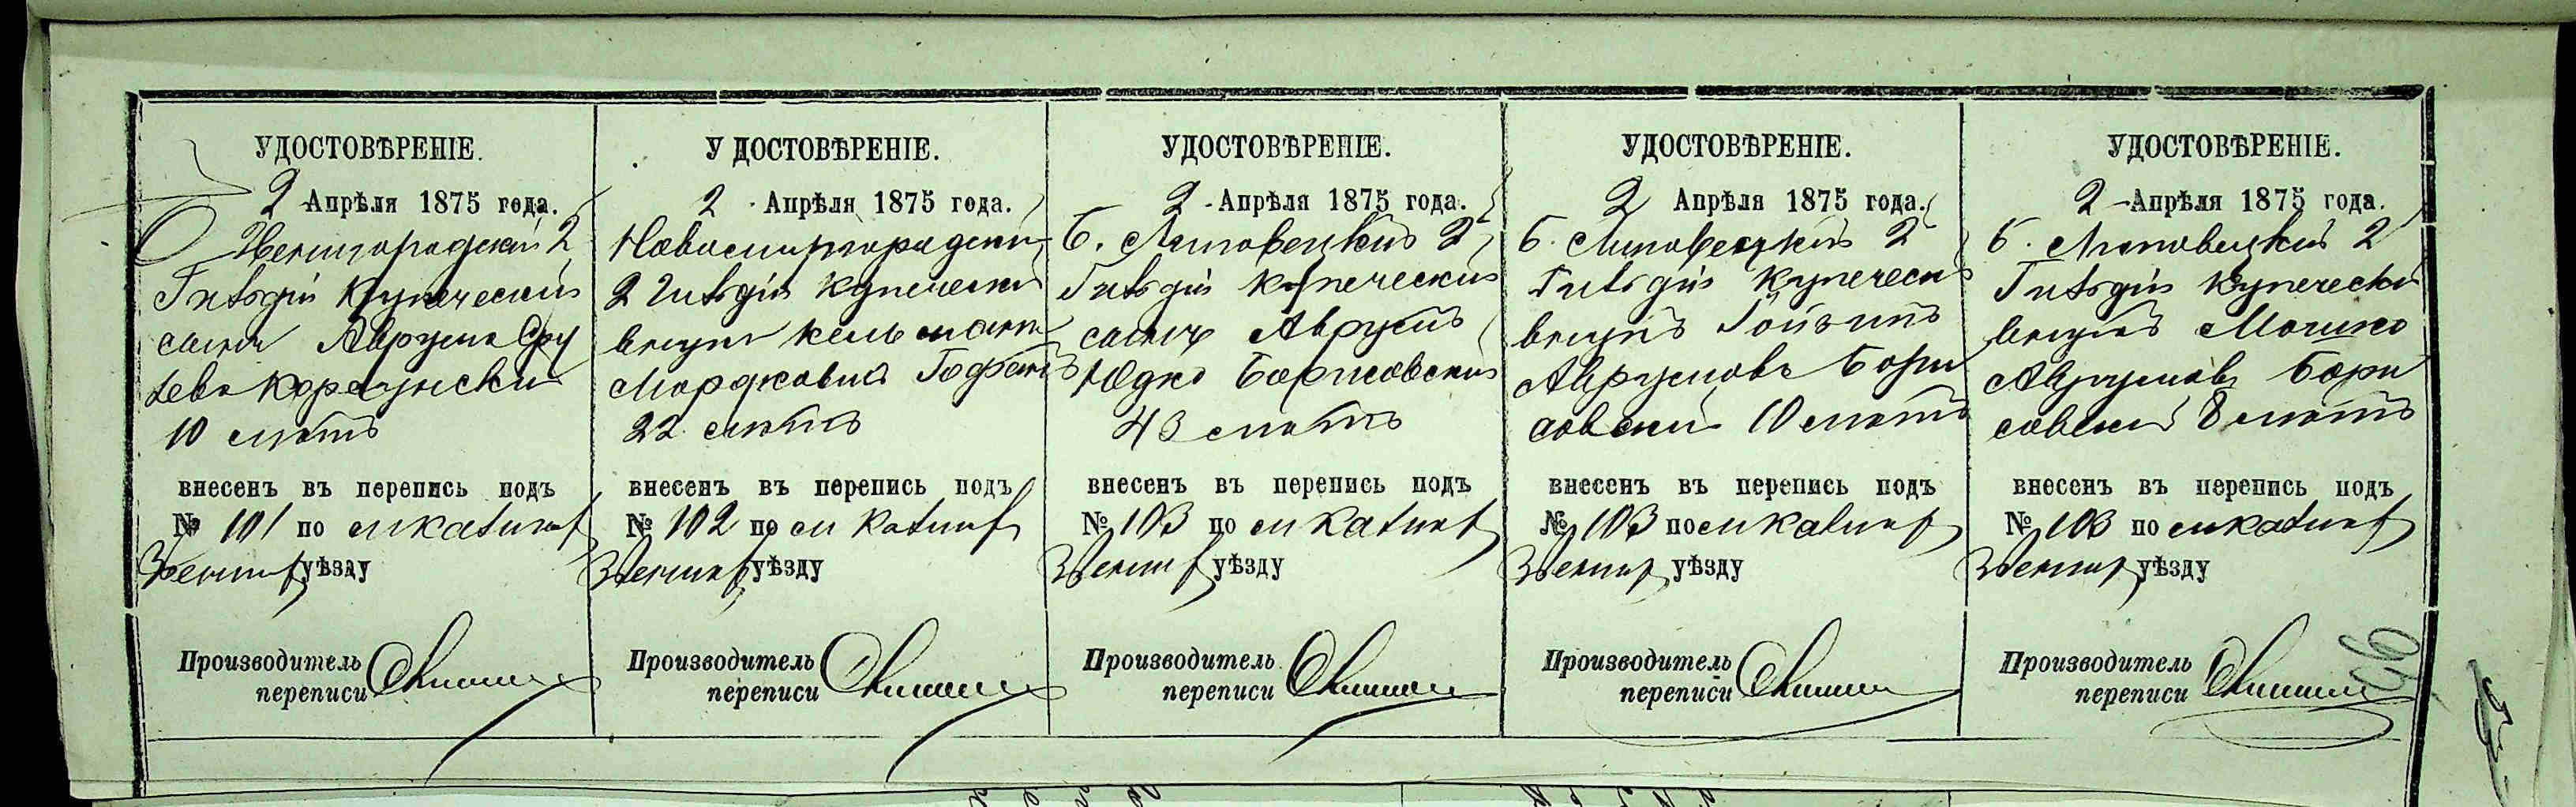 УДОСТОВѢРЕНІЕ.
2 Апрѣля 1875 года.
Звенигородскій 2
Гильдіи Купеческій
сынъ Аврумъ Сру
лева Корсунскій
10 лѣтъ
внесенъ въ перепись подъ
№ 101 по м Катериноп
Звениг уѣзду
Производитель
переписи
УДОСТОВѢРЕНІЕ.
2 Апрѣля 1875 года.
Новомиргородскій
2 Гильдіи Купеческій
внукъ Кельман
Мордковичъ Гофман
22 лѣтъ
внесенъ въ перепись подъ
№ 102 по м Катериноп
Звениг уѣзду
Производитель
переписи
УДОСТОВѢРЕНІЕ.
2 Апрѣля 1875 года.
б. Липовецкій 2
Гильдіи Купеческій
сынъ Аврумъ
Юдко Борисовскій
43 лѣтъ
внесенъ въ перепись подъ
№ 103 по м Катериноп
Звениг уѣзду
Производитель
переписи
УДОСТОВѢРЕНІЕ.
2 Апрѣля 1875 года.
б. Липовецкій 2
Гильдіи Купечески
внукъ Аврумовъ Бори
совскій 10 лѣтъ
внесенъ въ перепись подъ
№ 103 по м Катериноп
Звениг уѣзду
Производитель
переписи
УДОСТОВѢРЕНІЕ.
2 Апрѣля 1875 года.
б. Липовецкій 2
Гильдіи Купечески
внукъ Мошко
Аврумовъ Бори
совскій 8 лѣтъ
внесенъ въ перепись подъ
№ 103 по м Катериноп
Звениг уѣзду
Производитель
переписи